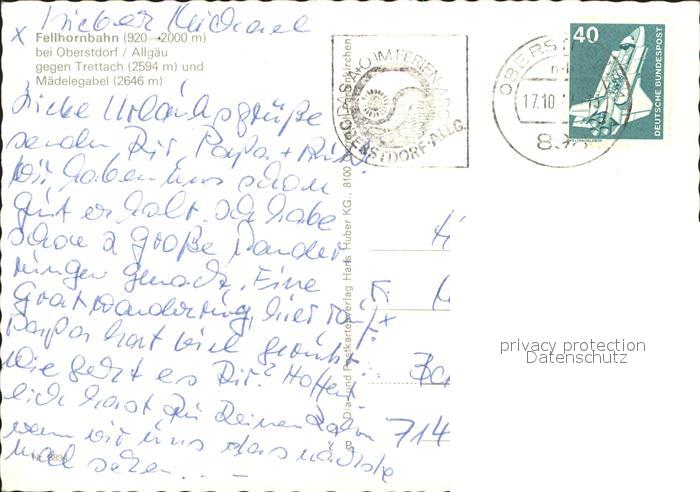 Lieber Michael
x Fellhornbahn (920–2000 m)
bei Oberstdorf / Allgäu
gegen Trettach (2594 m) und
Mädelegabel (2646 m)
Liebe Urlaubsgrüße
senden Dir Papa +
Wir haben uns schon
gut erholt. Ich habe
schon 2 große Wander
rungen gemacht. Eine
Gratwanderung, hier rauf x
Papa hat viel geruht.
Wie geht es Dir? Hoffent
lich hast Du Deinen
wenn wir uns das nächste
mal sehen...
Dia- und Postkartenverlag Hans Huber KG., 8100
OBERSTDORF-ALLG.
IM FERIEN
OBERS
17.10.
40
DEUTSCHE BUNDESPOST
714
privacy protection
Datenschutz